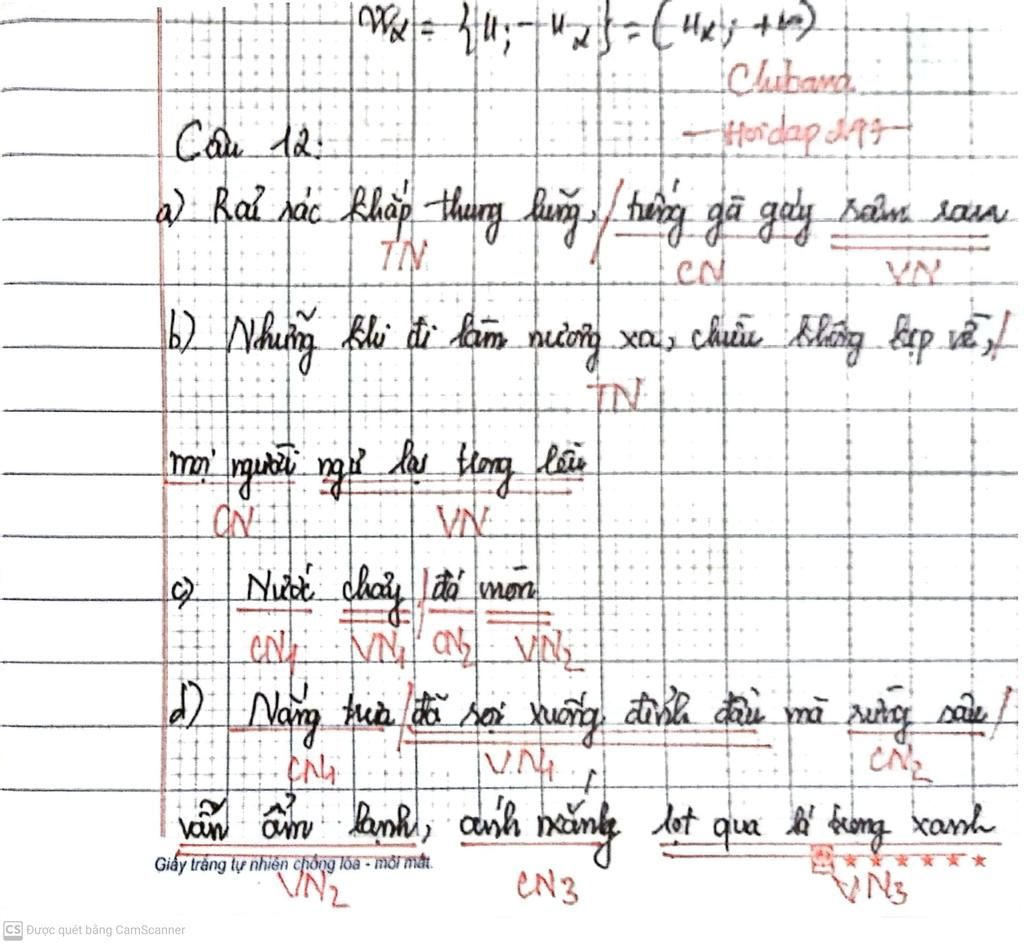 Clubana
Hoidap247
Câu 12:
a) Rải rác khắp thung lũng, / tiếng gà gáy râm ran
TN CN VN
b) Những khi đi làm nương xa, chiều không kịp về, /
TN
mọi người ngủ lại trong lều
CN VN
c) Nước chảy / đá mòn
CN1 VN1 CN2 VN2
d) Nắng trưa / đã rọi xuống đỉnh đầu mà rừng sâu /
CN1 VN1 CN2
vẫn ẩm lạnh, ánh nắng lọt qua lá trong xanh
Giấy trắng tự nhiên chống lóa - mỏi mắt.
VN2 CN3 VN3
CS Được quét bằng CamScanner